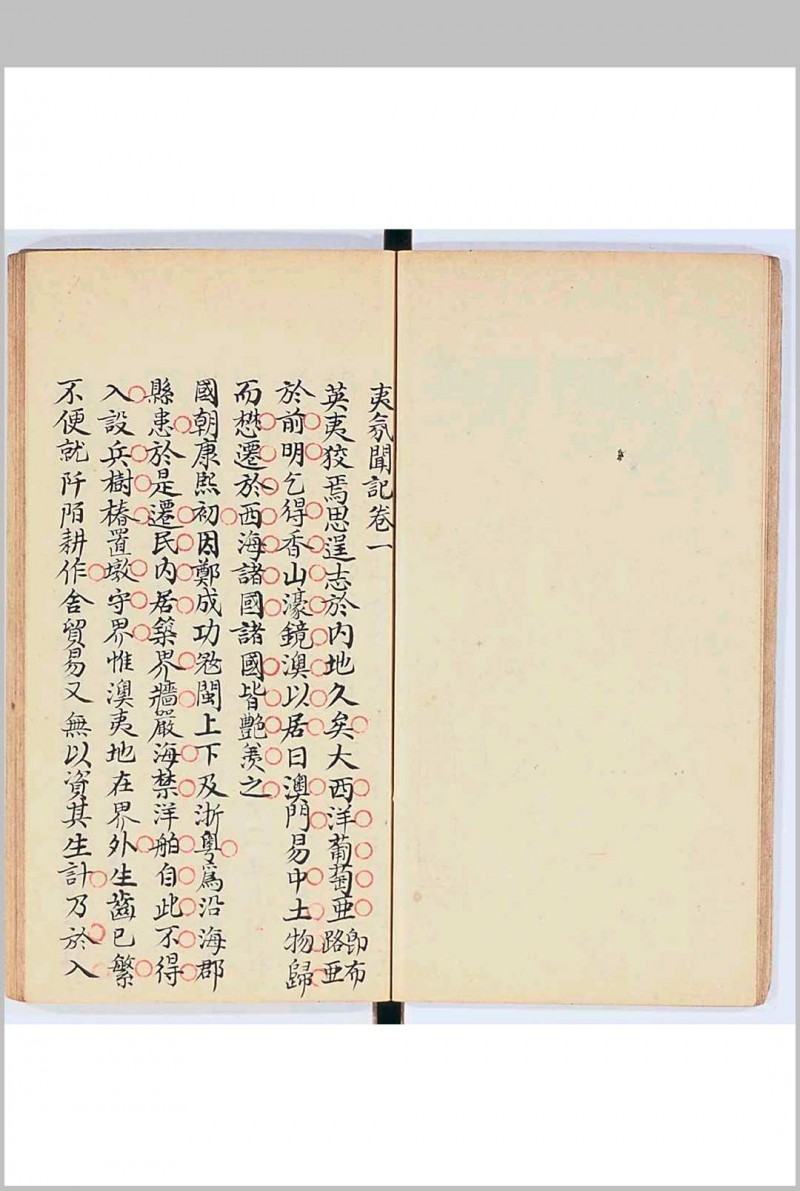 夷氛聞記卷一
英夷狡焉思逞志於内地久矣大西洋葡萄亞即布路亞
於前明乞得香山濠鏡澳以居曰澳門易中土物歸
而懋遷於西海諸國諸國皆艷羨之
國朝康熙初因鄭成功冦閩上下及浙粵爲沿海郡
縣患於是遷民内居築界牆嚴海禁洋舶自此不得
入設兵樹樁置墩守界惟澳夷地在界外生齒已繁
不便就阡陌耕作舍貿易又無以資其生計乃於入